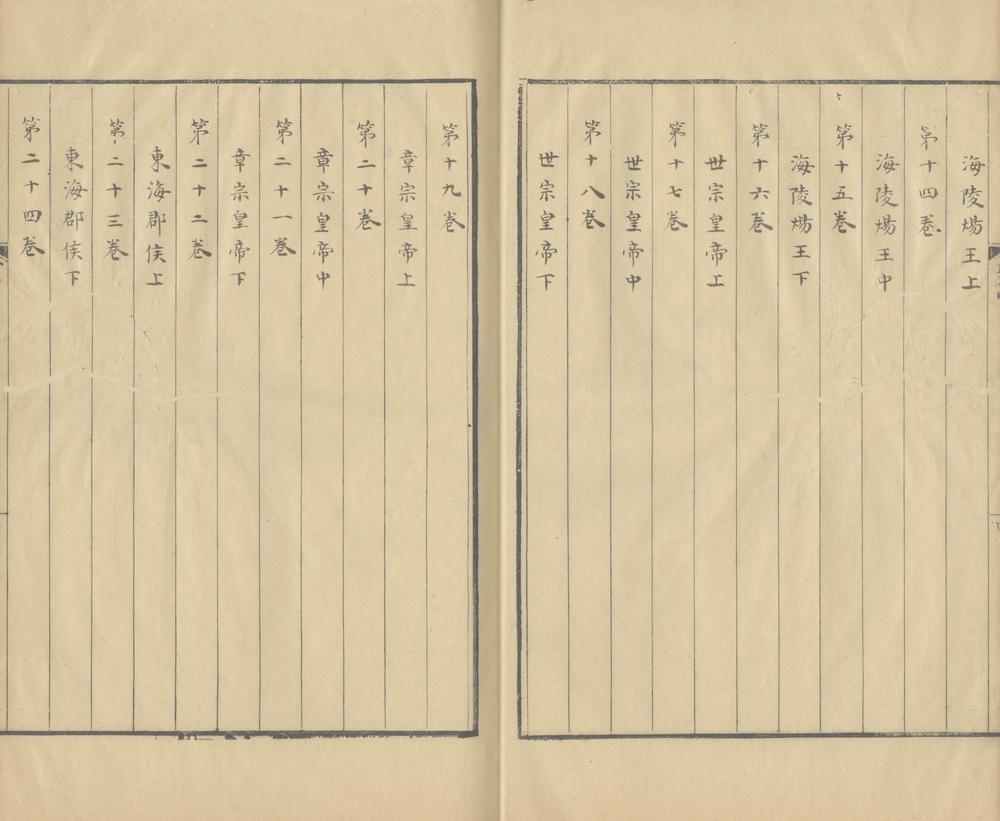 海陵煬王上
第十四卷
海陵煬王中
第十五卷
海陵煬王下
第十六卷
世宗皇帝上
第十七卷
世宗皇帝中
第十八卷
世宗皇帝下
第十九卷
章宗皇帝上
第二十卷
章宗皇帝中
第二十一卷
章宗皇帝下
第二十二卷
東海郡侯上
第二十三卷
東海郡侯下
第二十四卷